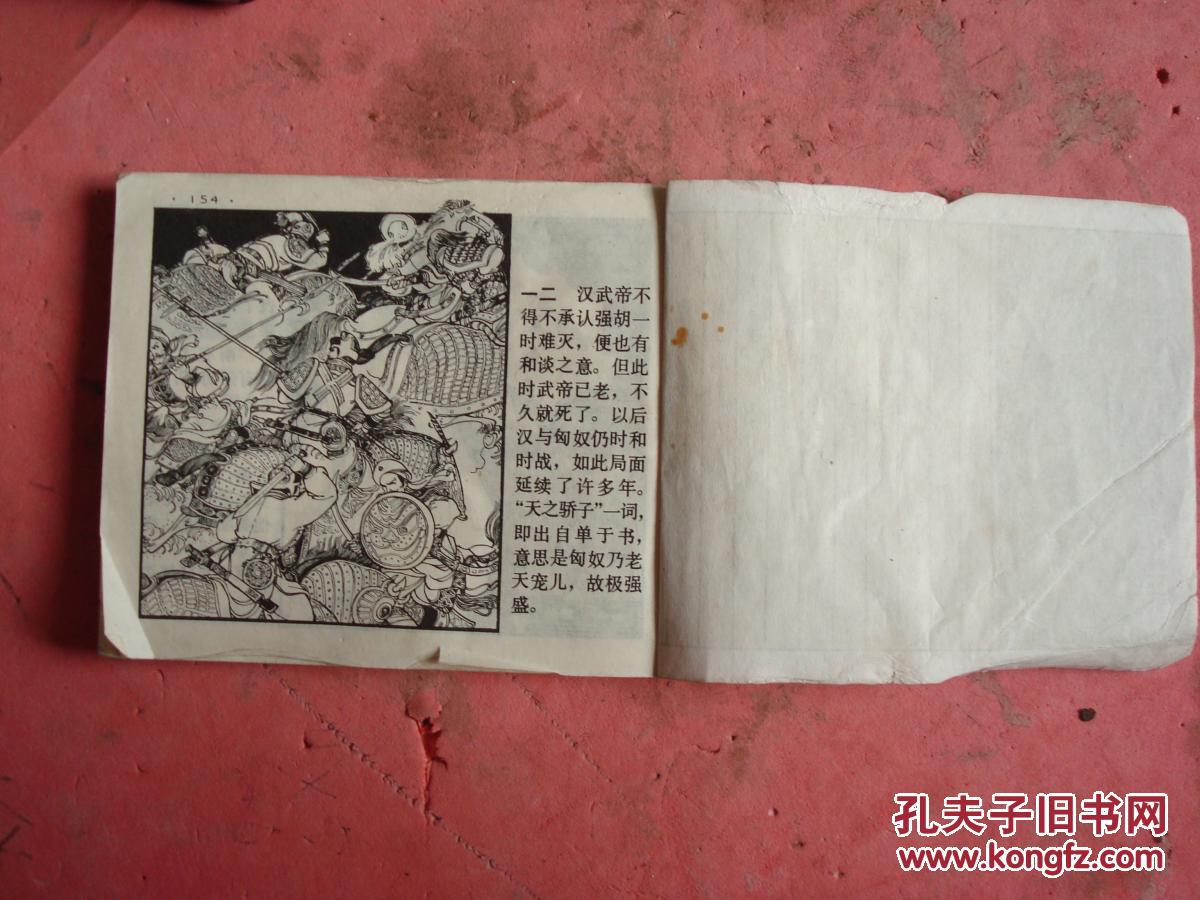 · 154 ·
一二 汉武帝不
得不承认强胡一
时难灭，便也有
和谈之意。但此
时武帝已老，不
久就死了。以后
汉与匈奴仍时和
时战，如此局面
延续了许多年。
“天之骄子”一词，
即出自单于书，
意思是匈奴乃老
天宠儿，故极强
盛。
孔夫子旧书网
www.kongfz.com